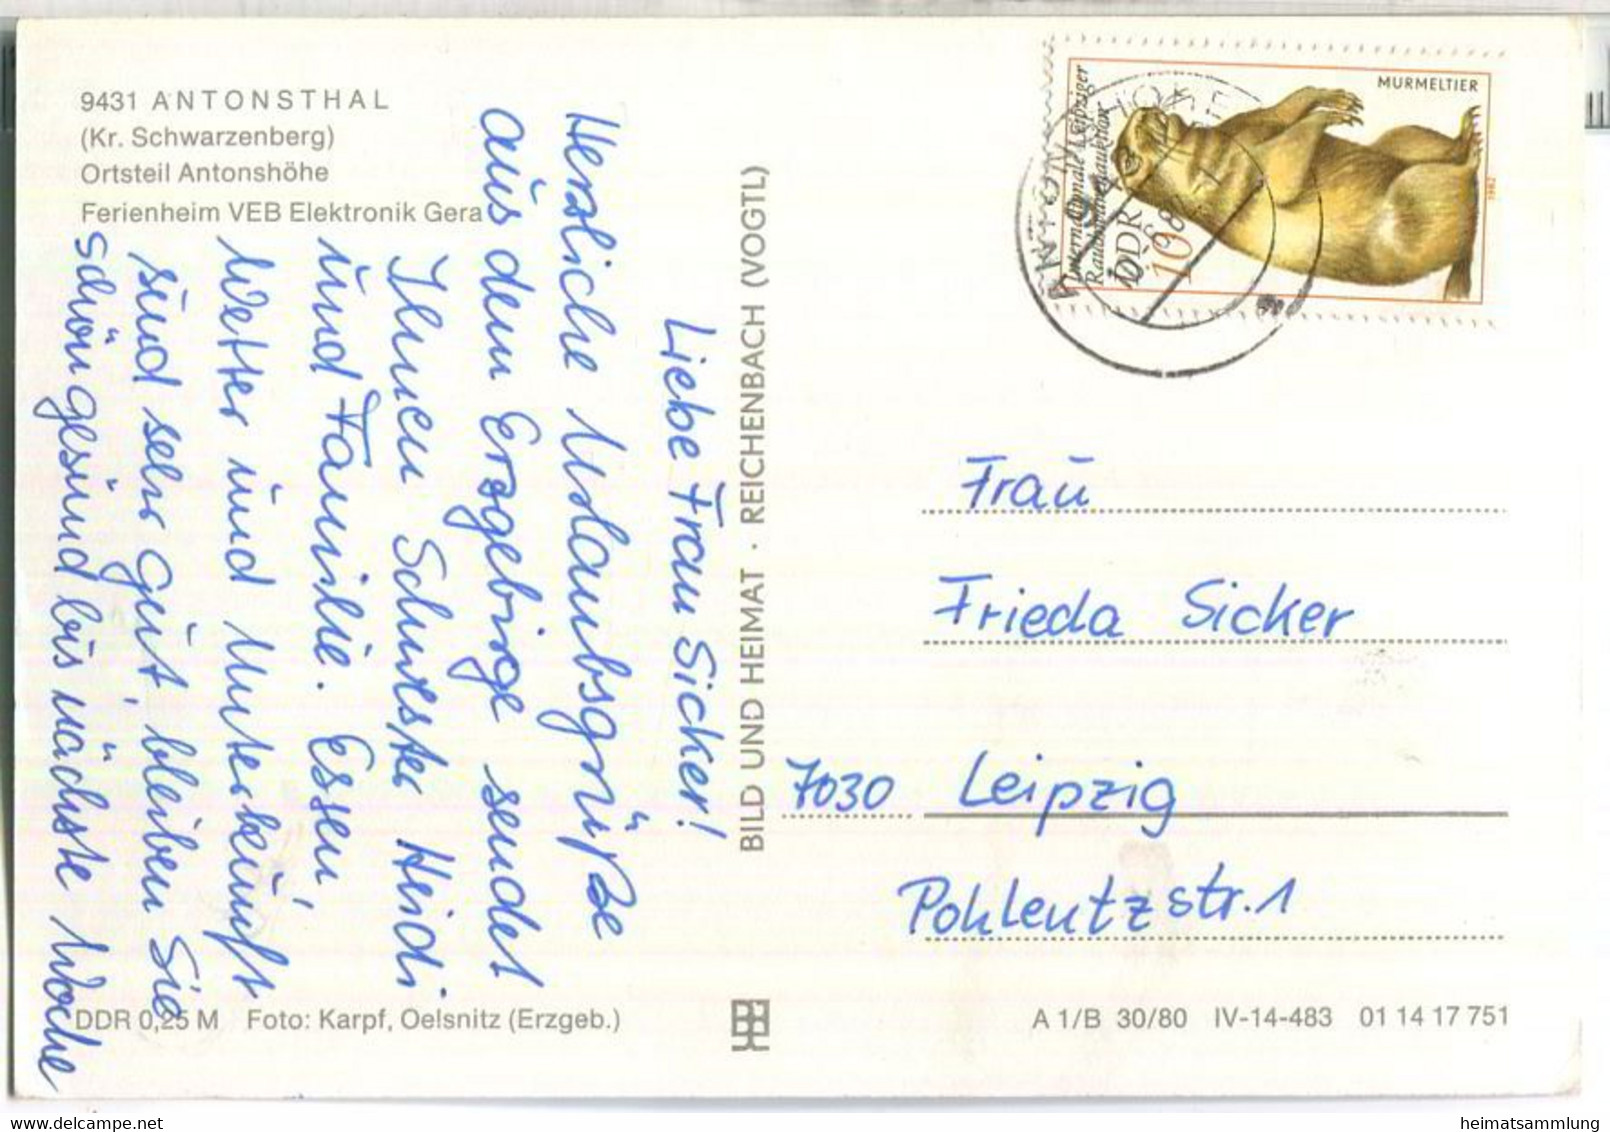 9431 ANTONSTHAL
(Kr. Schwarzenberg)
Ortsteil Antonshöhe
Ferienheim VEB Elektronik Gera
Liebe Frau Sicker!
Herzliche Urlaubsgrüße
aus dem Erzgebirge sendet
Ihnen Schwester Heidi
und Familie. Essen,
Wetter und Unterkunft
sind sehr gut, bleiben Sie
schön gesund bis nächste Woche
DDR 0,25 M Foto: Karpf, Oelsnitz (Erzgeb.)
BILD UND HEIMAT · REICHENBACH (VOGTL)
MURMELTIER
Internationale Leipziger
Rauchwarenauktion
DDR
10
1982
Frau
Frieda Sicker
7030 Leipzig
Pohlentzstr. 1
A 1/B 30/80 IV-14-483 01 14 17 751
heimatsammlung.de